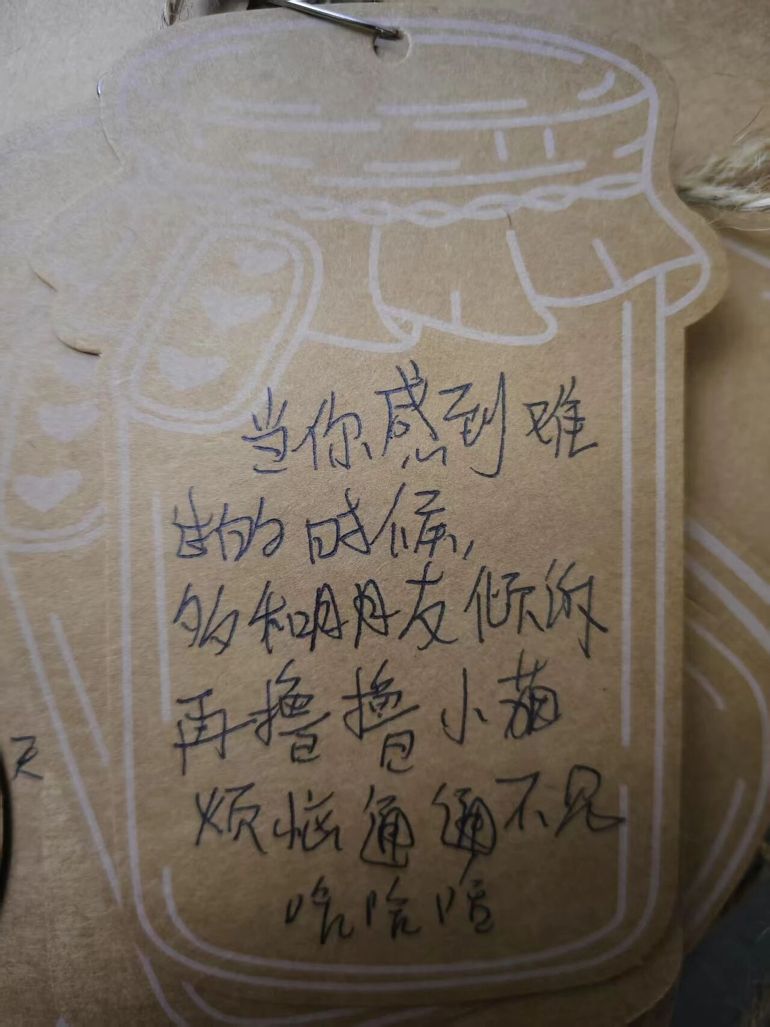 当你感到难
过的时候,
多和朋友倾诉
再撸撸小猫
烦恼通通不见
哈哈哈
天